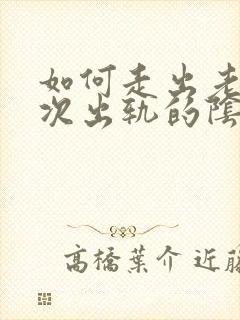 如何走出老
次出轨的陰
高橋葉介 近藤